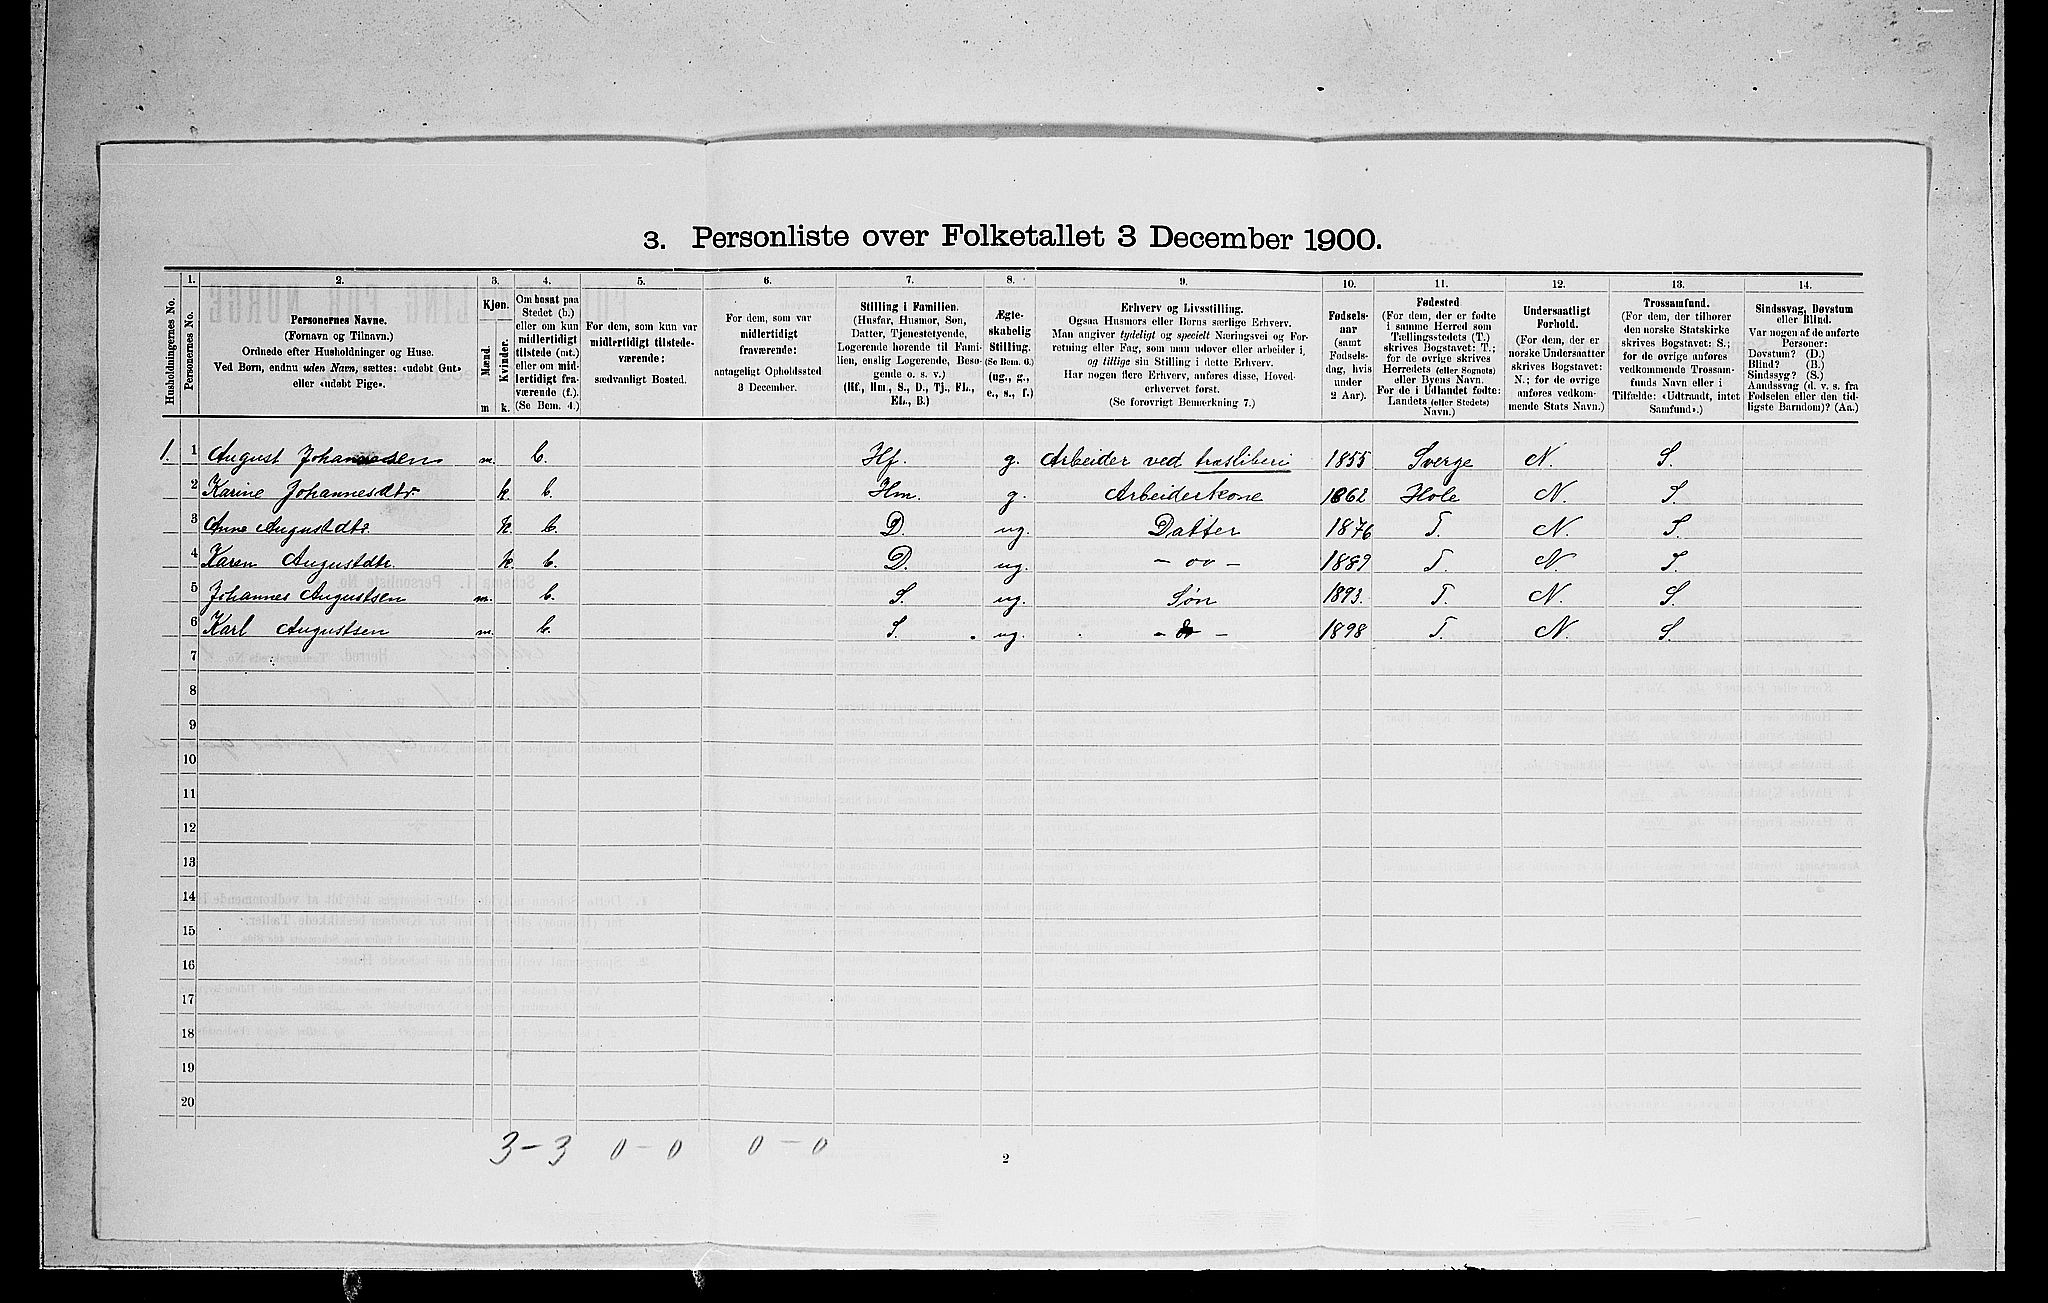 3. Personliste over Folketallet 3 December 1900.
1. 2. 3. 4. 5. 6. 7. 8. 9. 10. 11. 12. 13. 14.
Husholdningernes No.
Personernes No.
Personernes Navne.
(Fornavn og Tilnavn.)
Ordnede efter Husholdninger og Huse.
Ved Børn, endnu uden Navn, sættes: «udøbt Gut»
eller «udøbt Pige».
Kjøn.
Mænd.
Kvinder.
m k.
Om bosat paa
Stedet (b.)
eller om kun
midlertidigt
tilstede (mt.)
eller om mid-
lertidigt fra-
værende (f.).
(Se Bem. 4.)
For dem, som kun var
midlertidigt tilstede-
værende:
sædvanligt Bosted.
For dem, som var
midlertidigt
fraværende:
antageligt Opholdssted
3 December.
Stilling i Familien.
(Husfar, Husmor, Søn,
Datter, Tjenestetyende,
Logerende hørende til Fami-
lien, enslig Logerende, Besø-
gende o. s. v.)
(Hf, Hm., S., D., Tj., FL.,
EL., B.)
Ægte-
skabelig
Stilling.
(Se Bem. 6.)
(ug., g.,
e., s., f.)
Erhverv og Livsstilling.
Ogsaa Husmors eller Børns særlige Erhverv.
Man angiver tydeligt og specielt Næringsvei og For-
retning eller Fag, som man udøver eller arbeider i,
og tillige sin Stilling i dette Erhverv.
Har nogen flere Erhverv, anføres disse, Hoved-
erhvervet først.
(Se forøvrigt Bemærkning 7.)
Fødsels-
aar
(samt
Fødsels-
dag, hvis
under
2 Aar).
Fødested
(For dem, der er fødte
i samme Herred som
Tællingsstedets (T.)
skrives Bogstavet: T.;
for de øvrige skrives
Herredets (eller Sognets)
eller Byens Navn.
For de i Udlandet fødte:
Landets (eller Stedets)
Navn.)
Undersaatligt
Forhold.
(For dem, der er
norske Undersaatter
skrives Bogstavet:
N.; for de øvrige
anføres vedkom-
mende Stats Navn.)
Trossamfund.
(For dem, der tilhører
den norske Statskirke
skrives Bogstavet: S.;
for de øvrige anføres
vedkommende Trossam-
funds Navn eller i
Tilfælde: «Udtraadt, intet
Samfund».)
Sindssvag, Døvstum
eller Blind.
Var nogen af de anførte
Personer:
Døvstum? (D.)
Blind? (B.)
Sindssyg? (S.)
Aandssvag (d. v. s. fra
Fødselen eller den tid-
ligste Barndom)? (Aa.)
1. 1 August Johannesen m. b. Hf. g. Arbeider ved træsliberi 1855 Sverge N. S.
2 Karine Johannesdtr. k. b. Hm. g. Arbeiderkone 1862 Hole N. S.
3 Anne Augustdtr. k. b. D. ug. Datter 1876 T. N. S.
4 Karen Augustdtr. k. b. D. ug. - " - 1889 T. N. S.
5 Johannes Augustsen m. b. S. ug. Søn 1893. T. N. S.
6 Karl Augustsen m. b. S. ug. - " - 1898 T. N. S.
7
8
9
10
11
12
13
14
15
16
17
18
19
20
3-3 0-0 0-0
2